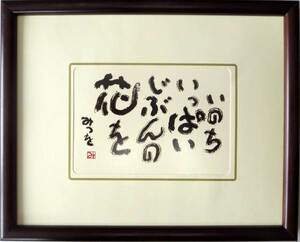 いのち
いっぱい
じぶんの
花を
みつを